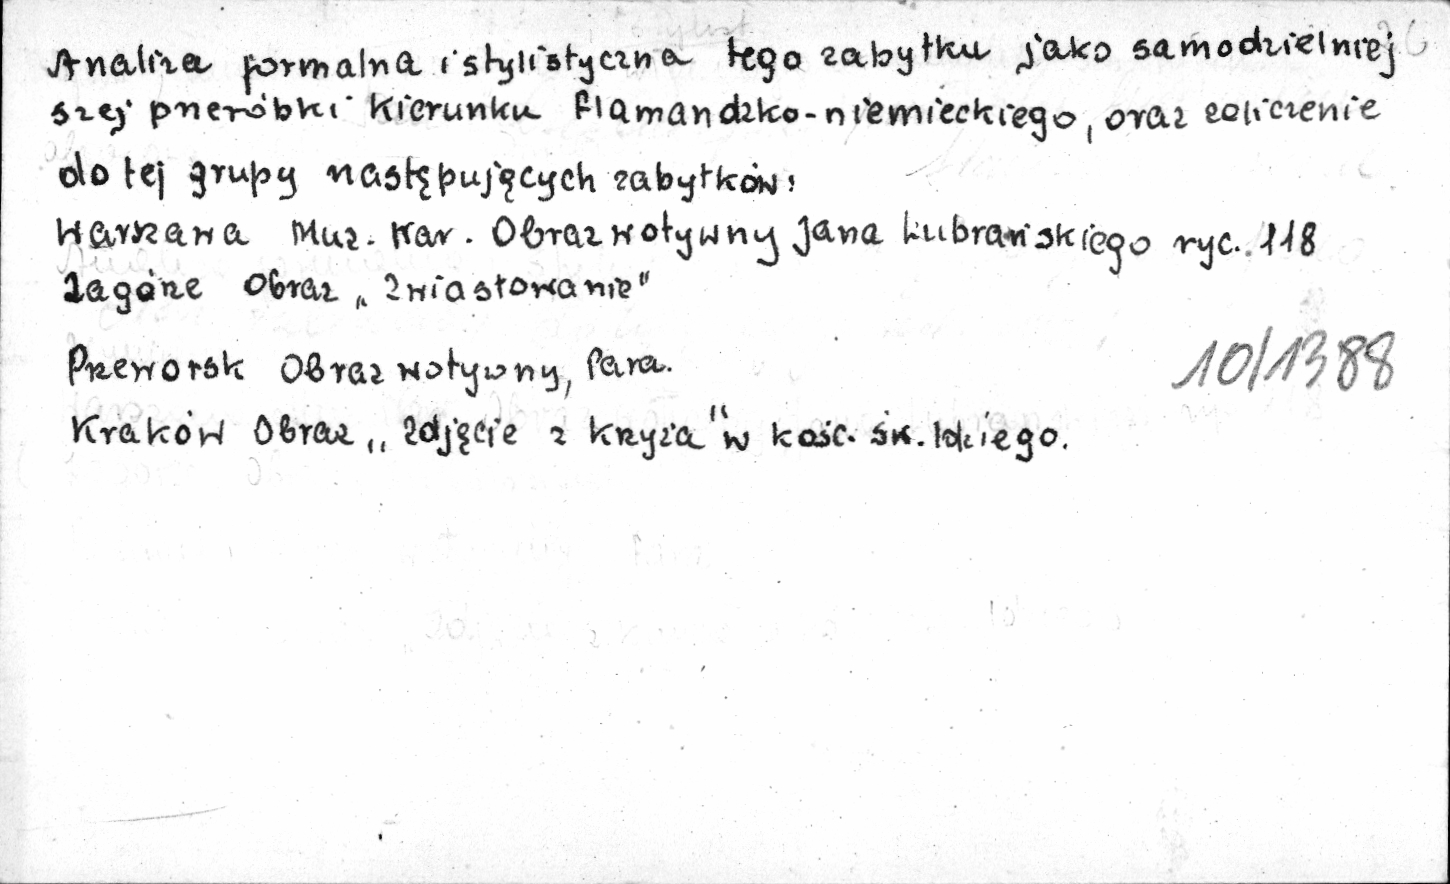 Analiza formalna i stylistyczna tego zabytku jako samodzielniej
szej przeróbki kierunku flamandzko-niemieckiego, oraz zaliczenie
do tej grupy następujących zabytków:
Warszawa Muz. Nar. Obraz wotywny Jana Lubrańskiego ryc. 118
Zagórze Obraz „Zwiastowanie"
Przeworsk Obraz wotywny, Para.
10/1388
Kraków Obraz „Zdjęcie z krzyża" w kośc. św. Idziego.